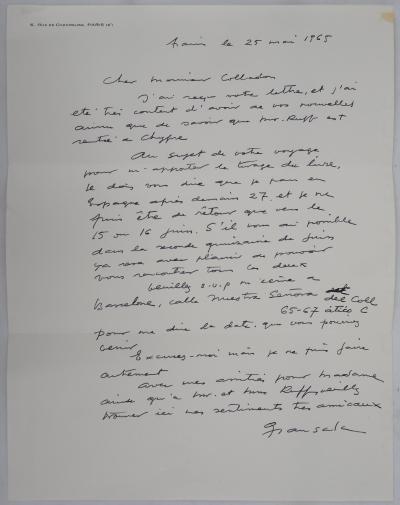 5, RUE DE CHEVREUSE, PARIS (6e)
Paris le 25 mai 1965
Cher Monsieur Colladon
J'ai reçu votre lettre, et j'ai
eté très content d'avoir de vos nouvelles
ainsi que de savoir que Mr. Ruff est
rentré a Chypre
Au sujet de votre voyage
pour m'apporter le tirage du livre,
je dois vous dire que je pars en
Espagne après demain 27. et je ne
puis être de retour que vers le
15 ou 16 juin. S'il vous est possible
dans la seconde quinzaine de juin
ça sera avec plaisir de pouvoir
vous rencontrer tous les deux
Veuillez s.v.p m'écrire a
Barcelone, calle Nuestra Señora del Coll
65-67 atico C
pour me dire la date que vous pouvez
venir
Excusez-moi mais je ne puis faire
autrement
Avec mes amitiés pour Madame
ainsi qu'a Mr. et Mme Ruff, veuillez
trouver ici mes sentiments très amicaux